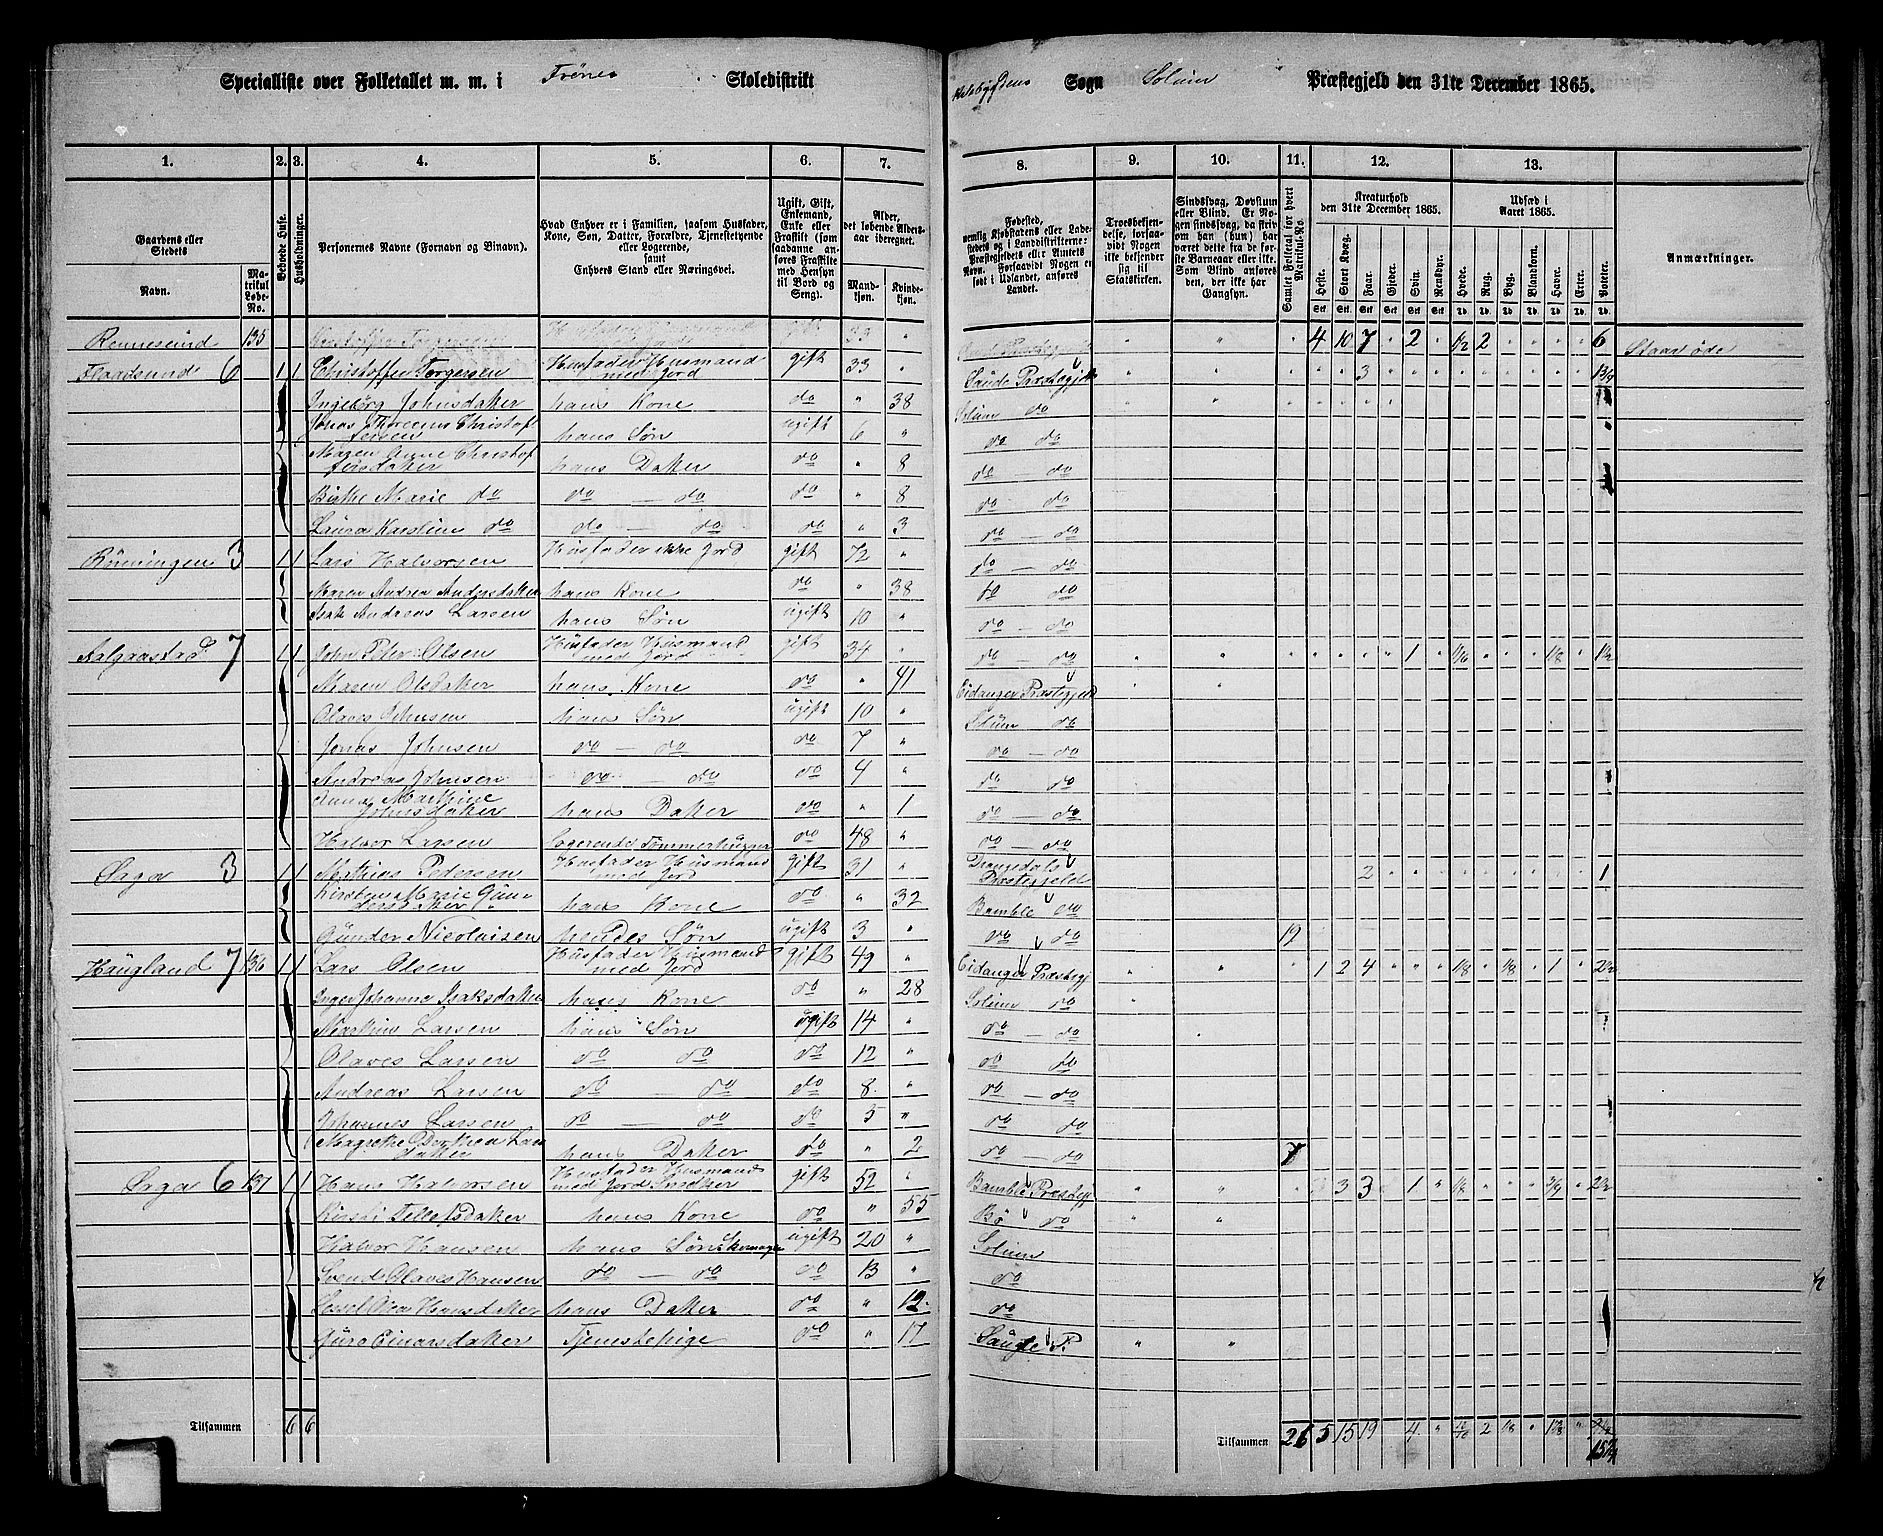 Specialliste over Folketallet m. m. i Trönes Skoledistrikt
Sogn Solum Præstegjeld den 31te December 1865.
1.
2.
3.
4.
5.
6.
7.
8.
9.
10.
11.
12.
13.
Gaardens eller Stedets
Navn.
Matrikul Løbe-No.
Beboede Huse.
Husholdninger.
Personernes Navne (Fornavn og Binavn).
Hvad Enhver er i Familien, saasom Husfader, Kone, Søn, Datter, Forældre, Tjenestetyende eller Logerende, samt Enhvers Stand eller Næringsvei.
Ugift, Gift, Enkemand, Enke eller Fraskilt (som saadanne anføres Fraskilte med Hensyn til Bord og Seng).
Alder, det løbende Aldersaar iberegnet.
Mandkjøn.
Kvindekjøn.
Fødested, nemlig Kjøbstadens eller Ladestedets og i Landdistrikterne: Præstegjeldets eller Annexets Navn. Forsaavidt Nogen er født i Udlandet, anføres Landet.
Troesbekjendelse, forsaavidt Nogen ikke bekjender sig til Statskirken.
Sindssvag, Døvstum eller Blind. Er Nogen sindssvag, da skriv om han (hun) har været dette fra de første Barneaar eller ikke. Som Blind anføres den, der ikke har Gangsyn.
Samlet Folketal for hvert Matrikul-No.
Kreaturhold den 31te December 1865.
Heste. Stort Kvæg. Faar. Gjeder. Svin. Rensdyr.
Udsæd i Aaret 1865.
Hvede. Rug. Byg. Blandkorn. Havre. Erter. Poteter.
Anmærkninger.
Rennesund 135 gift 33 4 10 7 2 1/2 2 6 Staar öde
Flaadsund 6 1 1 Christoffer Torgersen Husfader Husmand med Jord gift 33 Saude Præstegjeld 3
Ingeborg Johnsdatter hans Kone do 38 Solum do
Jonas Thorenus Christoffersen hans Søn ugift 6 do do
Maren Anne Christoffersdatter hans Datter do 8 do do
Birthe Marie do do do do 8 do do
Laura Karoline do do do do 3 do do
Rönningen 3 1 1 Lars Halvorsen Husfader ikke Jord gift 72 do do
Maren Andrea Andersdatter hans Kone do 38 do do
Isak Andreas Larsen hans Søn ugift 10 do do
Aalgaastad 7 1 1 John Peter Olsen Husfader Husmand med Jord gift 34 do do 1 1/6 1/8
Maren Olsdatter hans Kone do 41 Eidanger Præstegjeld
Olaves Johnsen hans Søn ugift 10 Solum do
Jonas Johnsen do do do 7 do do
Andreas Johnsen do do do 4 do do
Anne Martine Johnsdatter hans Datter do 1 do do
Halvor Larsen Logerende Tømmerhugger do 48 do do
Örga 3 1 1 Mathias Pedersen Husfader Husmand med Jord gift 31 Drangedals Præstegjeld 2 1
Kirsten Marie Gundersdatter hans Kone do 32 Bamble do
Gunder Nicolaisen Søn ugift 3 do do 19
Haugland 7 136 1 1 Lars Olsen Husfader Husmand med Jord gift 49 Eidanger Præstegj 1 2 4 1/8 1/8 1 2 1/2
Inger Johanne Isaksdatter hans Kone do 28 Solum do
Martin Larsen hans Søn ugift 14 do do
Olaves Larsen do do do 12 do do
Andreas Larsen do do do 8 do do
Johannes Larsen do do do 5 do do
Magrethe Dorthea Larsdatter hans Datter do 2 do do 7
Örga 6 137 1 1 Hans Halvorsen Husfader Husmand med Jord Snedker gift 52 Bamble Præstegj 3 3 1 1/8 2 1/2
Kirsti Tellefsdatter hans Kone do 55 Bö do
Halvor Hansen hans Søn Skomager ugift 20 Solum
Svend Olaves Hansen do do do 13 do
Hansdatter hans Datter do 12 do
Guro Einarsdatter Tjenestepige do 17 Saude P.
Tilsammen 6 6
Tilsammen 26 5 15 19 4 2 1/8